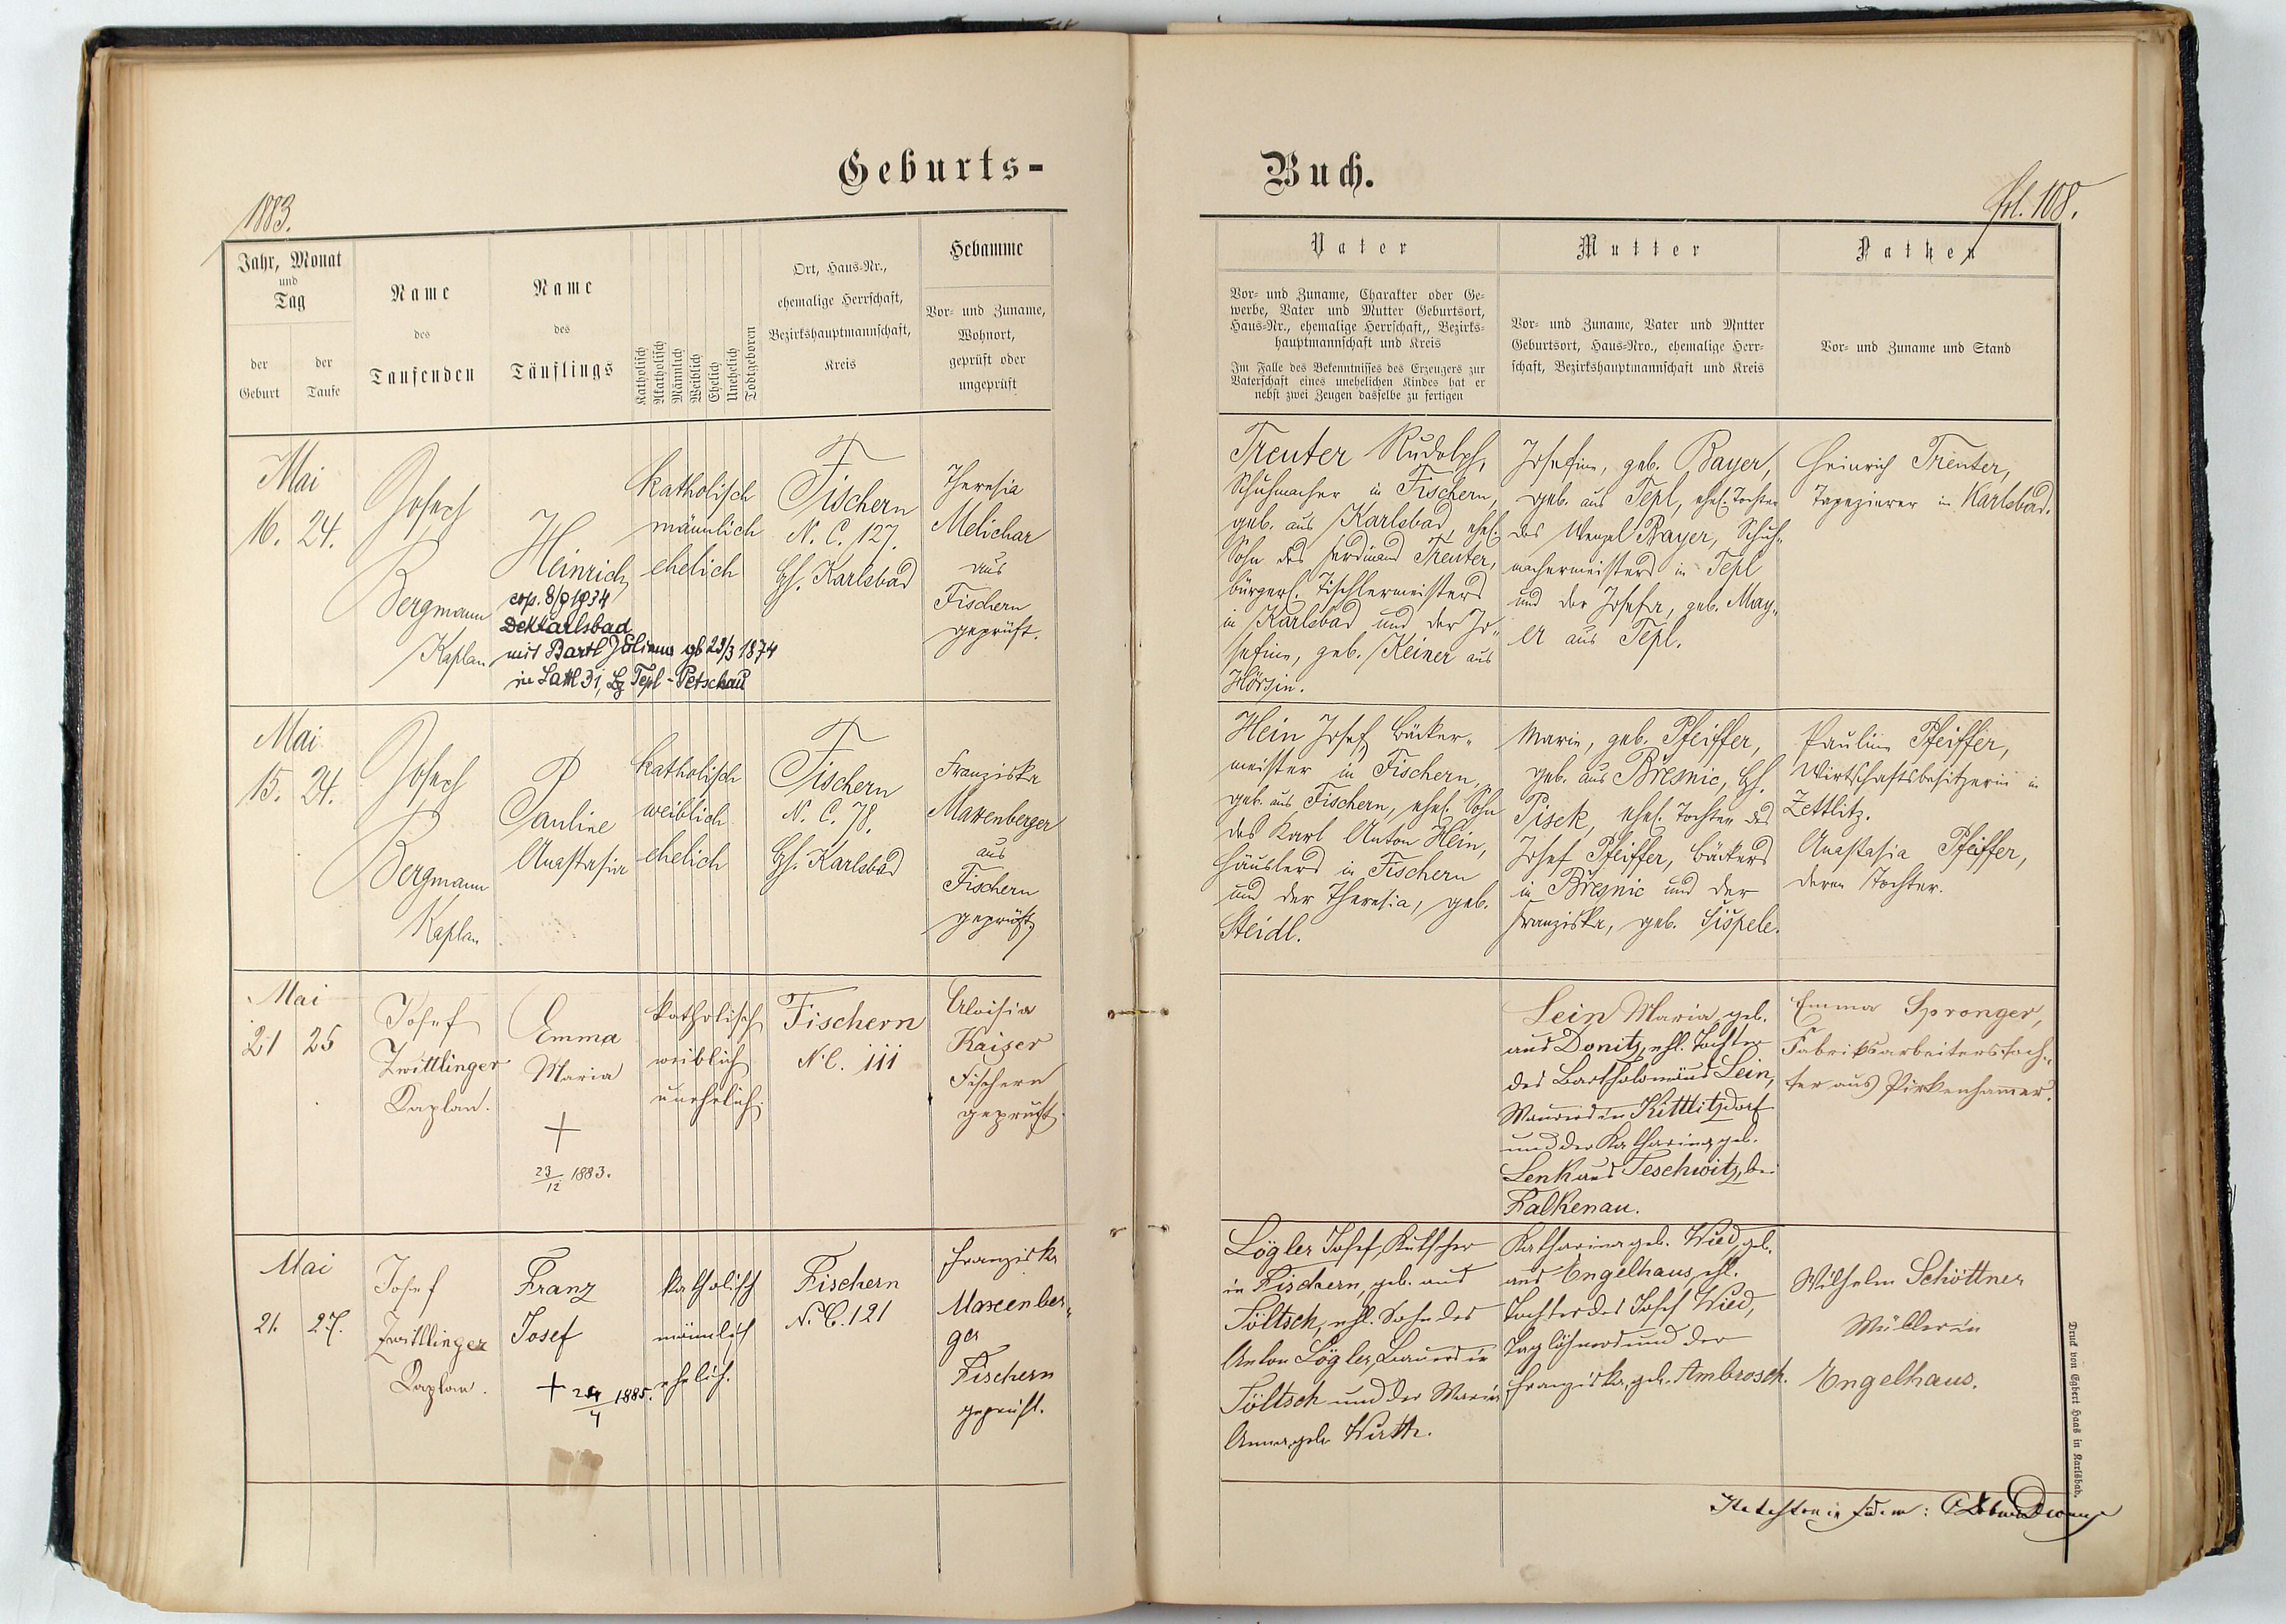 Geburts-
Buch.
1883.
fol. 108.
Jahr, Monat
und
Tag
der
Geburt
der
Taufe
Name
des
Taufenden
Name
des
Täuflings
Katholisch
Akatholisch
Männlich
Weiblich
Ehelich
Unehelich
Todtgeboren
Ort, Haus-Nr.,
ehemalige Herrschaft,
Bezirkshauptmannschaft,
Kreis
Hebamme
Vor- und Zuname,
Wohnort,
geprüft oder
ungeprüft
Vater
Vor- und Zuname, Charakter oder Ge-
werbe, Vater und Mutter Geburtsort,
Haus-Nr., ehemalige Herrschaft,, Bezirks-
hauptmannschaft und Kreis
Im Falle des Bekenntnisses des Erzeugers zur
Vaterschaft eines unehelichen Kindes hat er
nebst zwei Zeugen dasselbe zu fertigen
Mutter
Vor- und Zuname, Vater und Mntter
Geburtsort, Haus-Nro., ehemalige Herr-
schaft, Bezirkshauptmannschaft und Kreis
Pathen
Vor- und Zuname und Stand
Mai
16. 24.
Josef
Bergmann
Kaplan
Heinrich
cop. 8/9 1934
Dek Karlsbad
mit Bartl Juliana gb 23/3 1874
in Sattl 31, Bz Tepl-Petschau
katholisch
männlich
ehelich
Fischern
N. C. 127.
Bh. Karlsbad
Theresia
Melichar
aus
Fischern
geprüft.
Treuter Rudolph,
Schuhmacher in Fischern,
geb. aus Karlsbad, ehel.
Sohn des Ferdinand Treuter,
bürgerl. Tischlermeisters
in Karlsbad und der Jo-
sefine, geb. Keiner aus
Hörsin.
Josefine, geb. Bayer,
geb. aus Tepl, ehel. Tochter
des Wenzel Bayer, Schuh-
machermeisters in Tepl
und der Josefa, geb. May-
er aus Tepl.
Heinrich Treuter,
Tapezierer in Karlsbad.
Mai
15. 24.
Josef
Bergmann
Kaplan
Pauline
Anastasia
katholisch
weiblich
ehelich
Fischern
N. C. 78.
Bh. Karlsbad
Franziska
Maxenberger
aus
Fischern
geprüft
Hein Josef, Bäcker-
meister in Fischern,
geb. aus Fischern, ehel. Sohn
des Karl Anton Hein,
Häuslers in Fischern
und der Theresia, geb.
Steidl.
Marie, geb. Pfeiffer,
geb. aus Břesnic, Bh.
Pisek, ehel. Tochter des
Josef Pfeiffer, Bäckers
in Břesnic und der
Franziska, geb. Šišpele.
Pauline Pfeiffer,
Wirtschaftsbesitzerin in
Zettlitz.
Anastasia Pfeiffer,
deren Tochter.
Mai
21 25
Josef
Zwittlinger
Kaplan.
Emma
Maria
+
23/12 1883.
katholisch
weiblich
unehelich.
Fischern
N. C. 111
Aloisia
Kaiser
Fischern
geprüft.
Lein Maria, geb.
aus Donitz, ehl. Tochter
des Bartholomäus Lein,
Maurers in Kittlitzdorf
und der Katharina, geb.
Lenk aus Teschwitz, bei
Falkenau.
Emma Spronger,
Fabriksarbeiterstoch-
ter aus Pirkenhammer.
Mai
21. 27.
Josef
Zwittlinger
Kaplan.
Franz
Josef
+ 24/4 1885.
katholisch
männlich
ehelich.
Fischern
N. C. 121
Franziska
Maxenber-
ger
Fischern
geprüft.
Lögler Josef, Kutscher
in Fischern, geb. aus
Töltsch, ehl. Sohn des
Anton Lögler, Bauers in
Töltsch und der Maria
Anna, geb. Wirth.
Katharina geb. Wied, geb.
aus Engelhaus, ehl.
Tochter des Josef Wied,
Taglöhners und der
Franziska, geb. Ambrosch.
Wilhelm Schöttner
Müller in
Engelhaus.
Druck von Egbert Haas in Karlsbad.